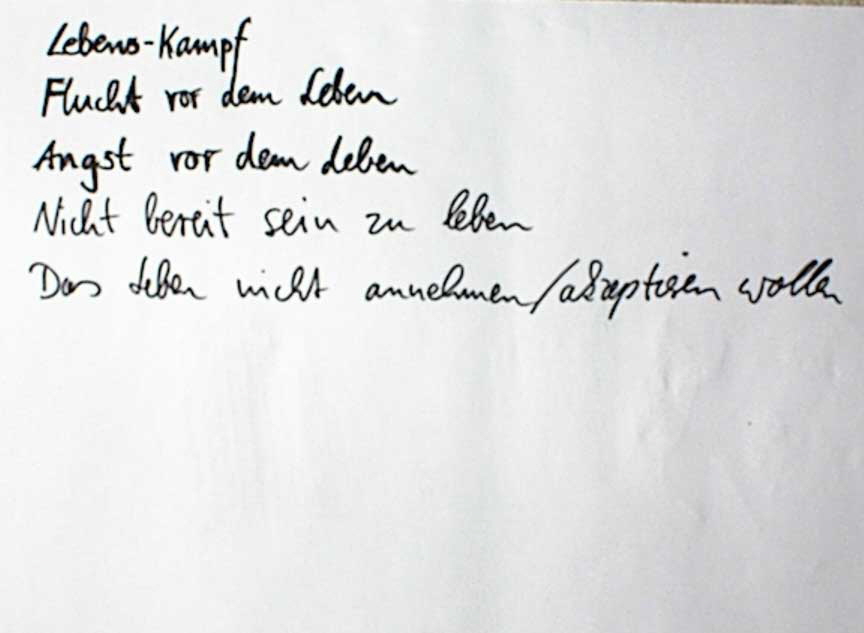 Lebens-Kampf
Flucht vor dem Leben
Angst vor dem Leben
Nicht bereit sein zu leben
Das Leben nicht annehmen/akzeptieren wollen